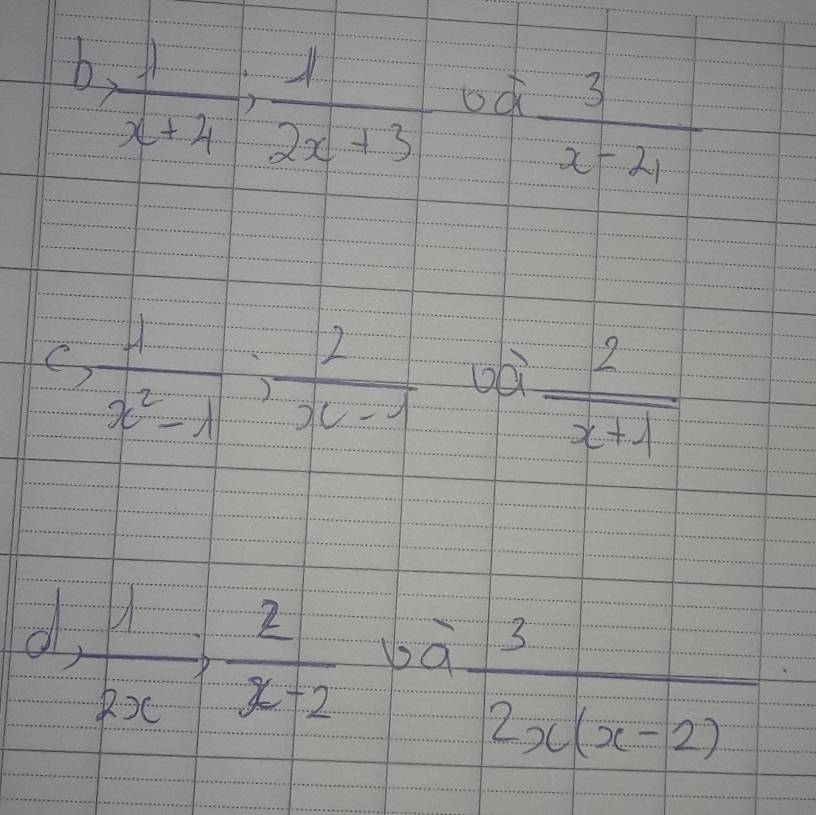 b, 1/(x+4) ; 1/(2x+3) và 3/(x-2)
c, 1/(x²-1) ; 2/(x-1) và 2/(x+1)
d, 1/(2x) ; 2/(x-2) và 3/(2x(x-2))